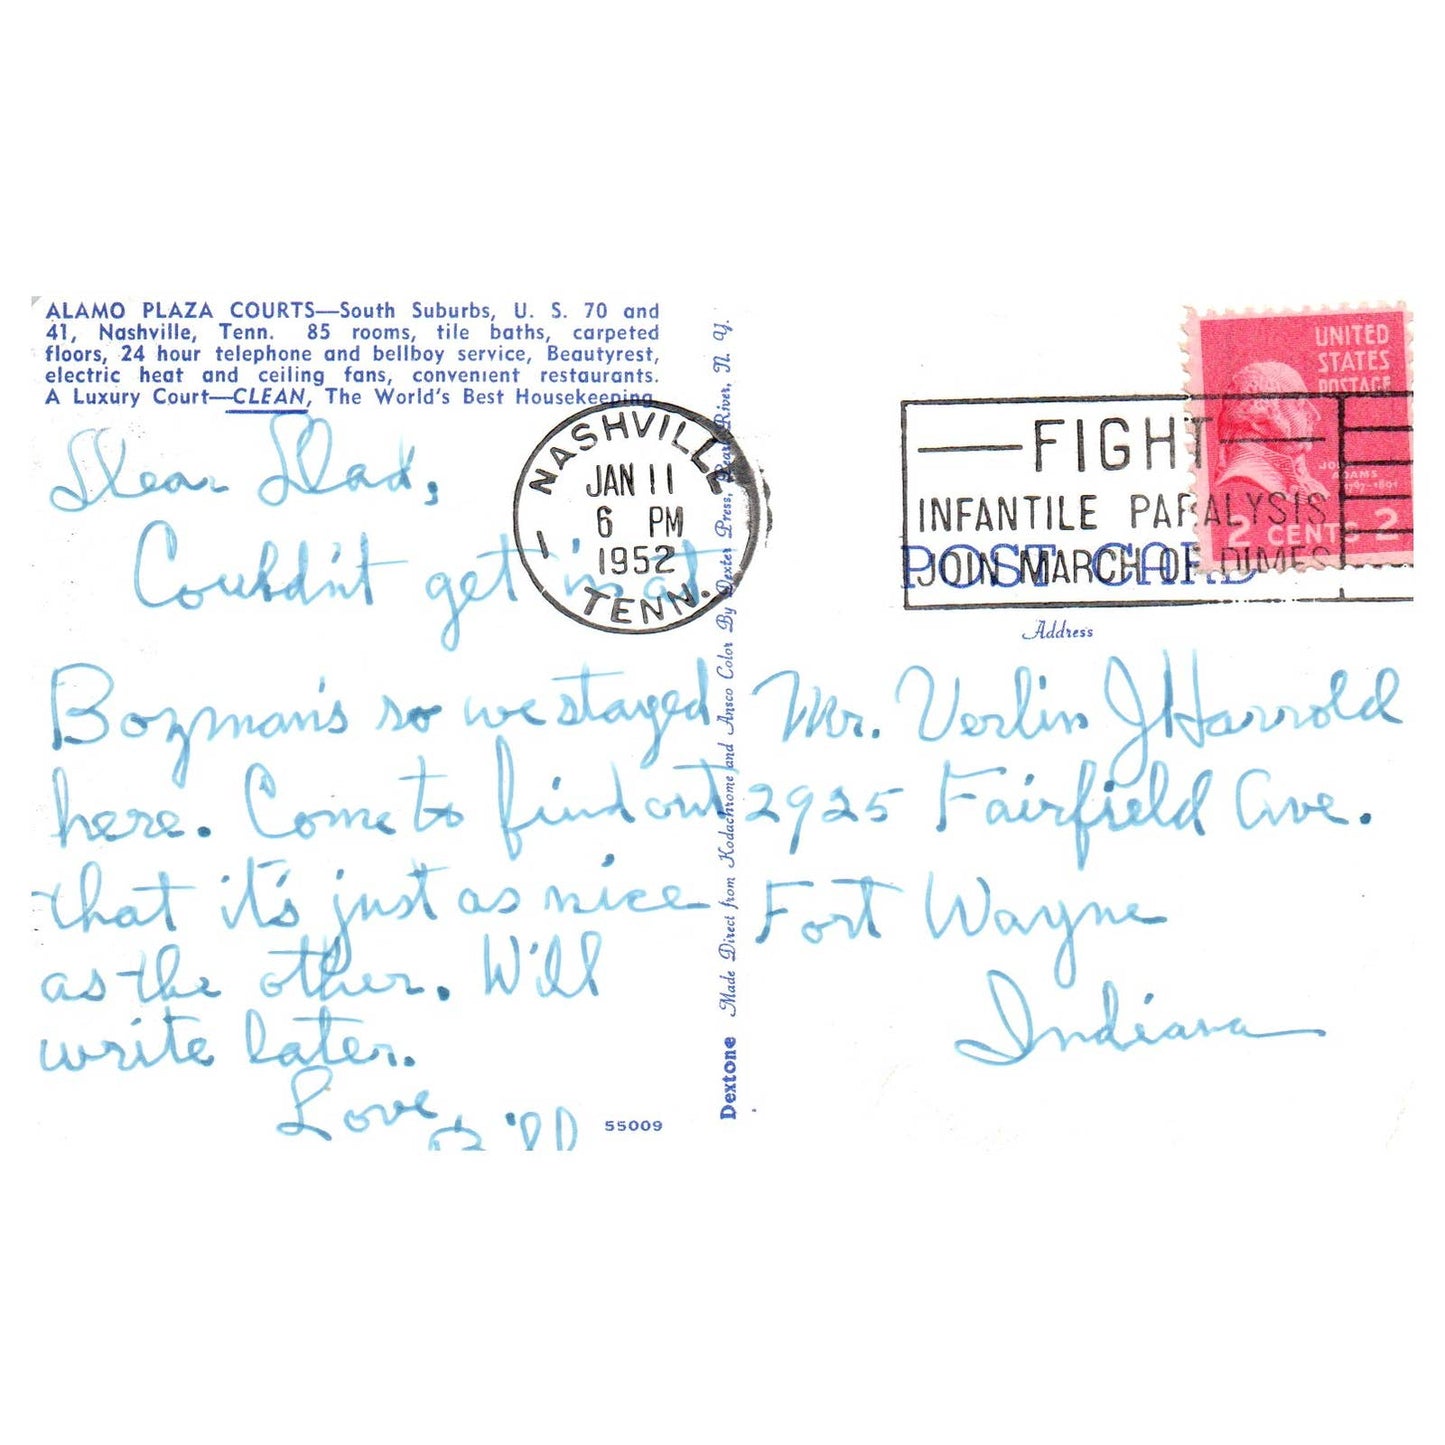 ALAMO PLAZA COURTS—South Suburbs, U. S. 70 and
41, Nashville, Tenn. 85 rooms, tile baths, carpeted
floors, 24 hour telephone and bellboy service, Beautyrest,
electric heat and ceiling fans, convenient restaurants.
A Luxury Court—CLEAN, The World's Best Housekeeping
Dear Dad,
Couldn't get in at
Bozman's so we stayed
here. Come to find out
that it's just as nice
as the other. Will
write later.
Love
Bill
55009
NASHVILLE
JAN 11
6 PM
1952
TENN.
Dextone Made Direct from Kodachrome and Ansco Color By Dexter Press, Pearl River, N. Y.
UNITED
STATES
POSTAGE
JOHN
ADAMS
1797-1801
2 CENTS 2
FIGHT
INFANTILE PARALYSIS
JOIN MARCH OF DIMES
POST CARD
Address
Mr. Verlin J Harrold
2925 Fairfield Ave.
Fort Wayne
Indiana